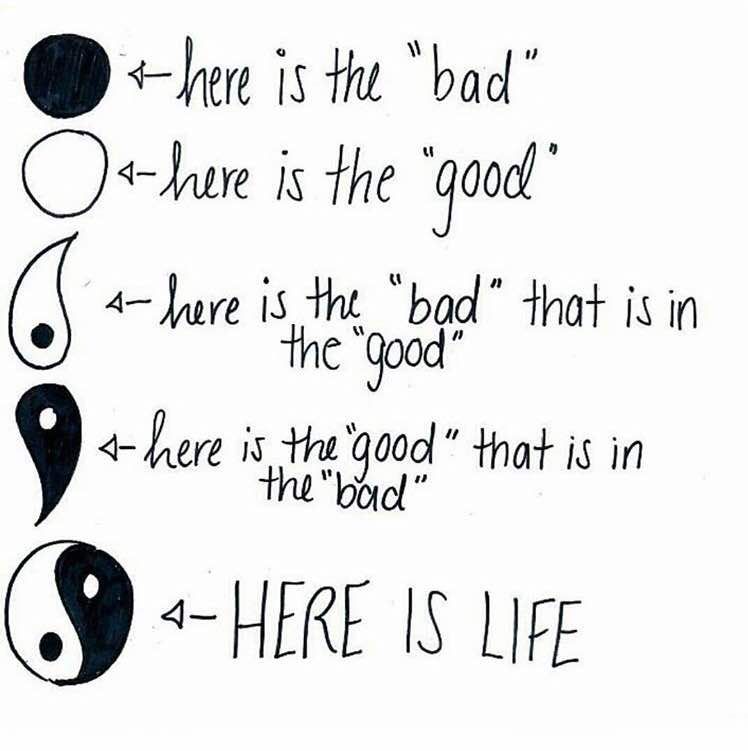 here is the "bad"
here is the "good"
here is the "bad" that is in
the "good"
here is the "good" that is in
the "bad"
HERE IS LIFE